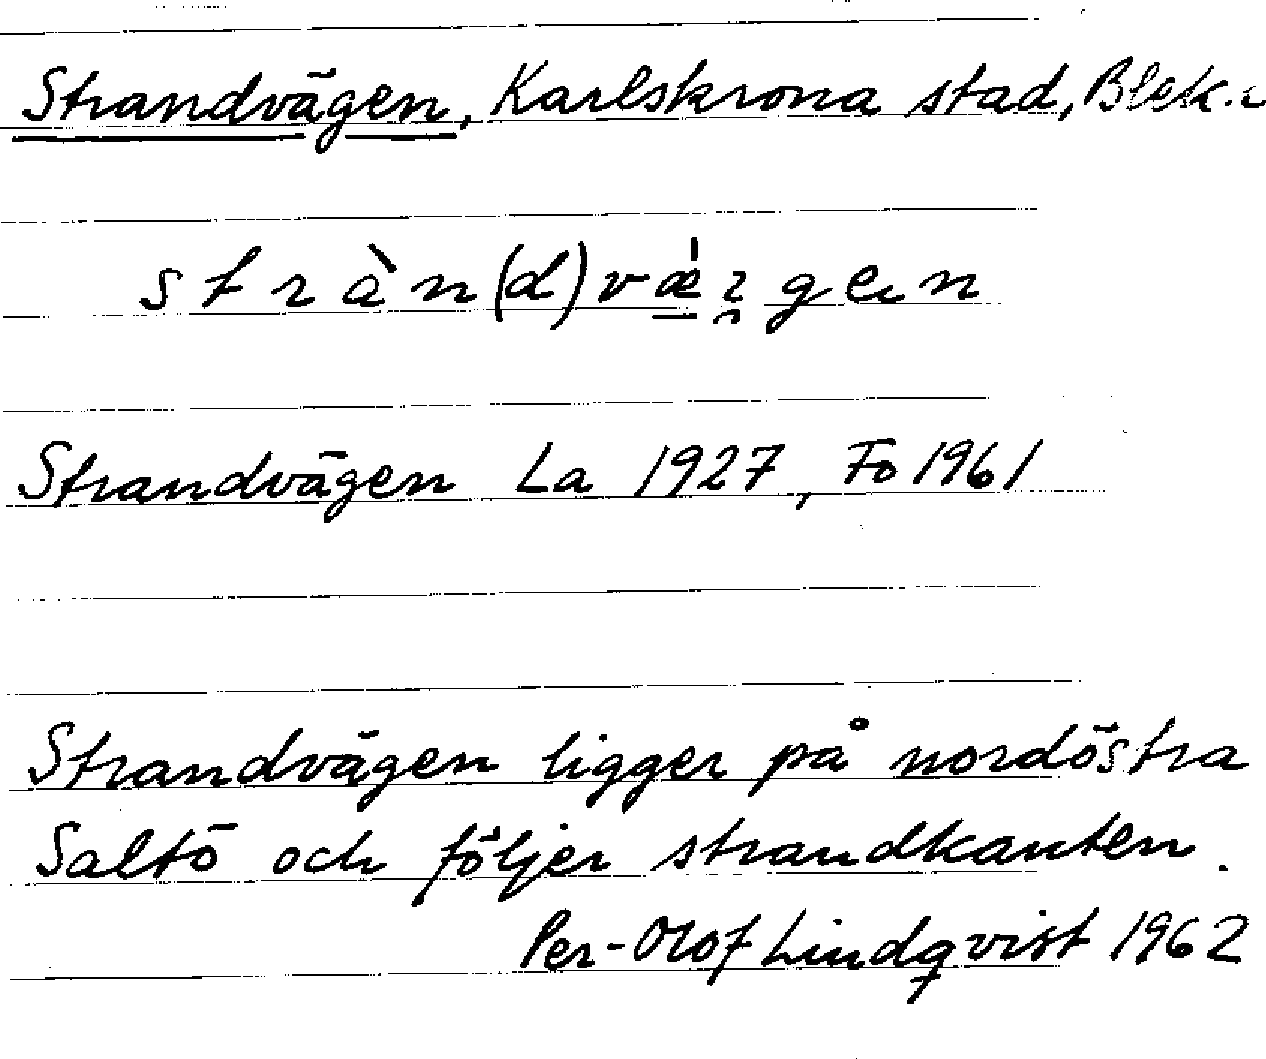 Strandvägen, Karlskrona stad, Blek.
stràn(d)væ̀gen
Strandvägen La 1927, Fo 1961
Strandvägen ligger på nordöstra
Saltö och följer strandkanten.
Per-Olof Lindqvist 1962